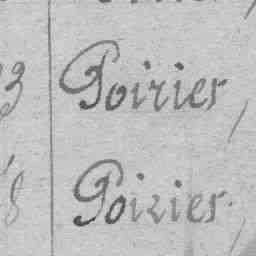 3 Poirier,
8 Poirier,